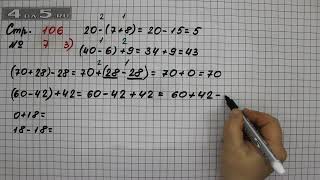 4 на 5.ru
Стр. 106
№ 7 3)
2 1
20-(7+8)=20-15=5
1 2
(40-6)+9=34+9=43
2 1
(70+28)-28=70+(28-28)=70+0=70
1 2
(60-42)+42=60-42+42=60+42-
0+18=
18-18=